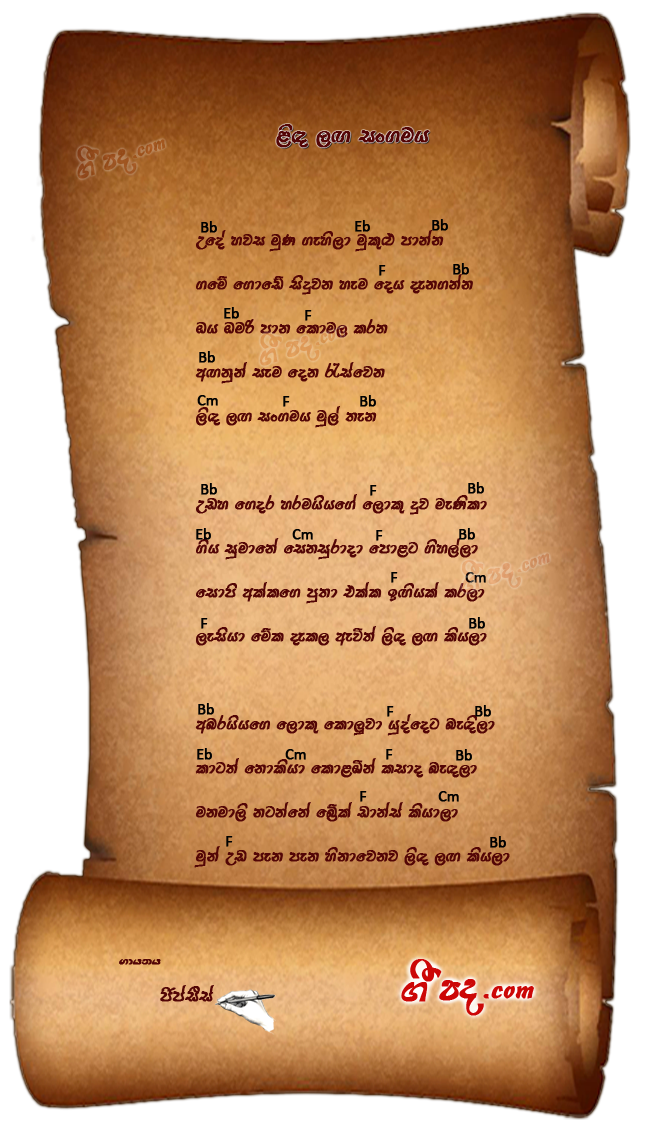 ළිඳ ලඟ සංගමය
ගී පද.com
Bb Eb Bb
උදේ හවස මුණ ගැහිලා මුකුළු පාන්න
F Bb
ගමේ ගොඩේ සිදුවන හැම දෙය දැනගන්න
Eb F
ඔය ඔමරි පාන කොමල කරන
ගී පද
Bb
අඟනුන් සැම දෙන රැස්වෙන
Cm F Bb
ලිඳ ලඟ සංගමය මුල් තැන
Bb F Bb
උඩහ ගෙදර හරමයියගේ ලොකු දුව මැණිකා
Eb Cm F Bb
ගිය සුමානේ සෙනසුරාදා පොළට ගිහල්ලා
ගී පද.com
F Cm
සොපි අක්කගෙ පුතා එක්ක ඉඟියක් කරලා
F Bb
ලැසියා මේක දැකල ඇවිත් ලිඳ ලඟ කියලා
Bb F Bb
අබරයියගෙ ලොකු කොලුවා යුද්දෙට බැඳිලා
Eb Cm F Bb
කාටත් නොකියා කොළඹින් කසාද බැඳලා
F Cm
මනමාලි නටන්නේ බ්‍රේක් ඩාන්ස් කියාලා
F Bb
මුන් උඩ පැන පැන හිනාවෙනව ලිඳ ලඟ කියලා
ගායනය
ජිප්සීස්
ගී පද.com